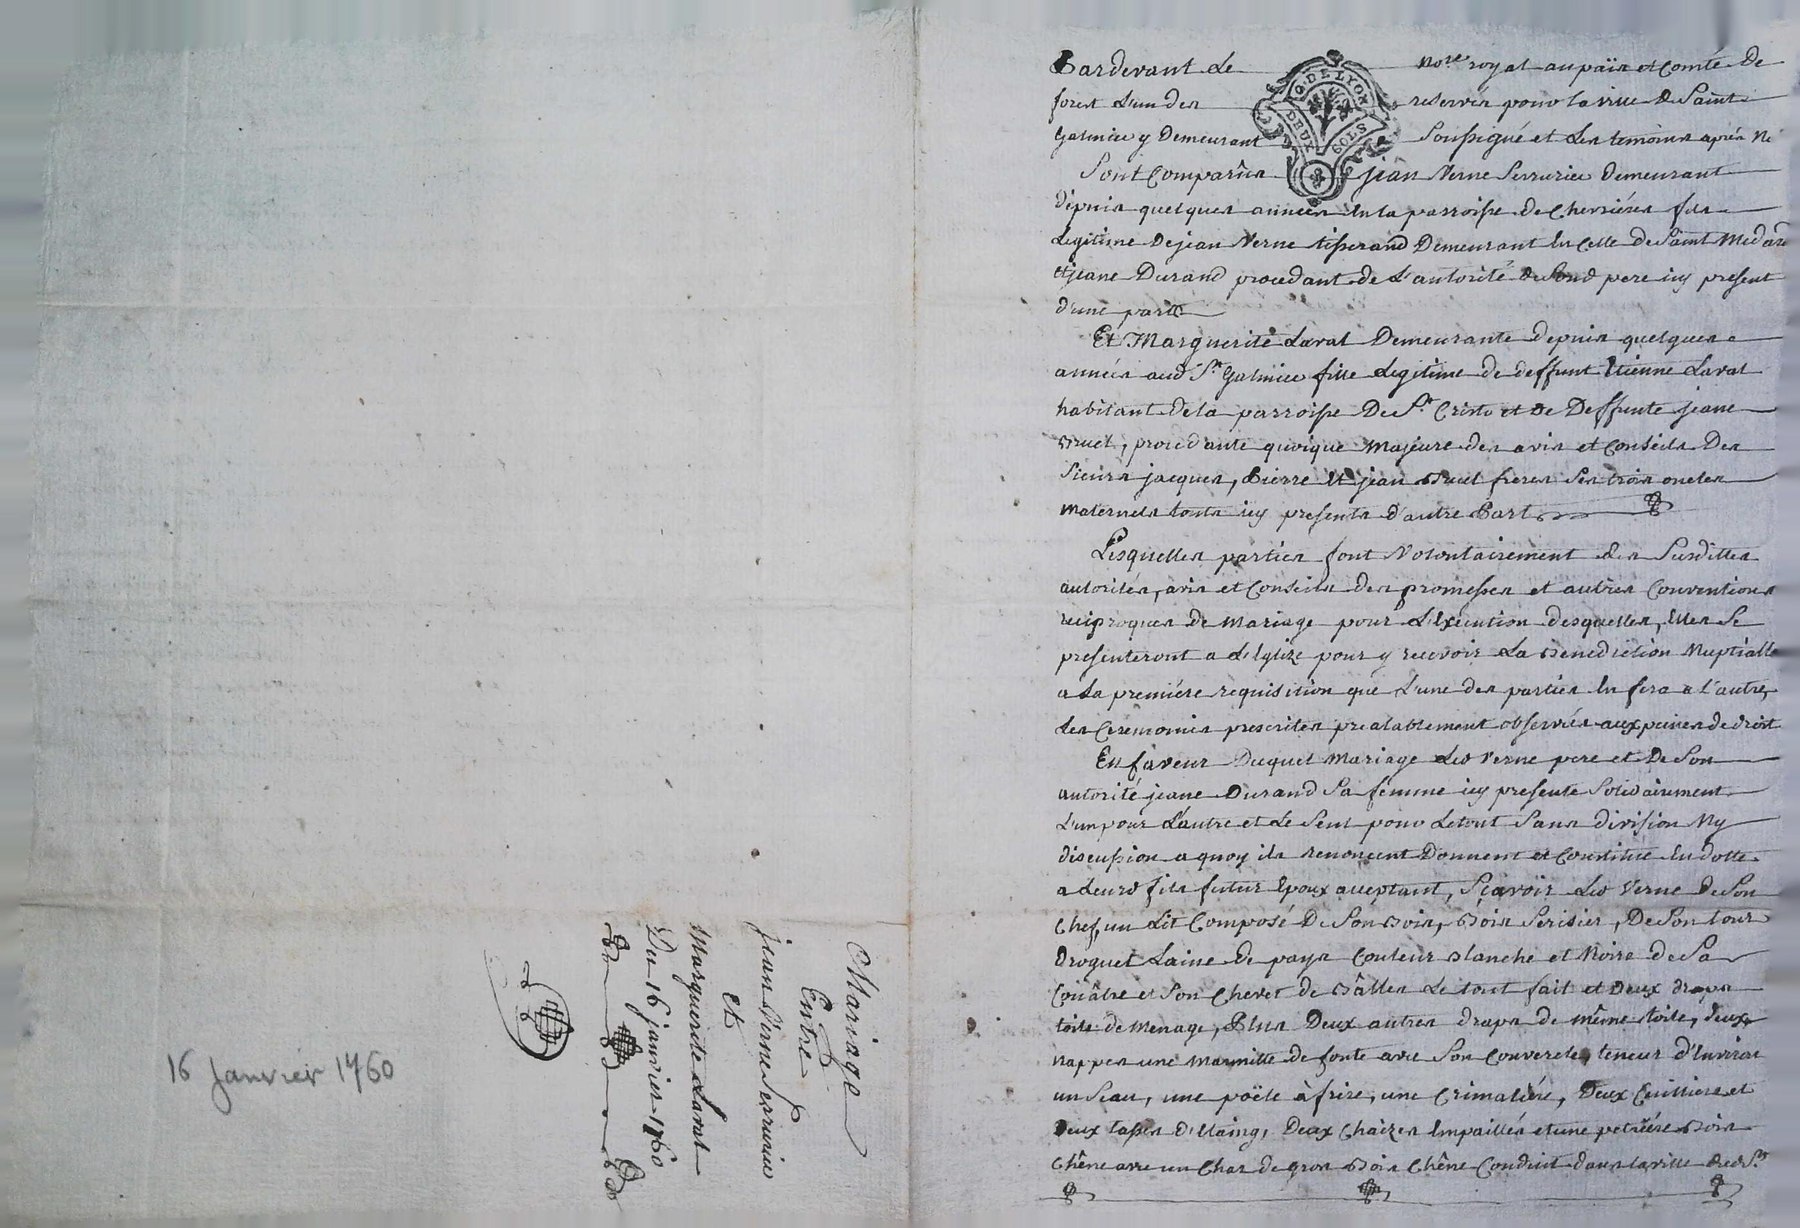 Pardevant Le nore royal au païs et Comté de
forest L'un des reservés pour la ville de Saint
Galmier y Demeurant Soussigné et Les temoins aprés Né
G. DE LYON
DEUX SOLS
Sont Comparûs jean Verne Serrurier Demeurant
depuis quelques années En la parroisse de Chevriéres fils
Legitime De jean Verne tisserand Demeurant En Celle de Saint Medard
et jeane Durand procedant de L'autorité de Sond pere icy present
d'une part
Et Marguerite Laval Demeurante depuis quelques
années aud St Galmier fille Legitime de deffunt Etienne Laval
habitant de la parroisse De St Cristo et de Deffunte jeane
Bruel, procedante quoique Majeure des avis et Conseils Des
Sieurs jacques, Pierre et jean Bruel freres Ses trois oncles
maternels touts icy presents d'autre Part
Lesquelles parties font Volontairement des Susdittes
autorités, avis et Conseils des promesses et autres Conventions
reciproques de mariage pour L'Execution desquelles, Elles Se
presenteront a L'Eglize pour y recevoir La Benediction Nuptialle
a La premiére requisition que L'une des parties En fera a l'autre,
Les Ceremonies prescrites prealablement observées aux peines de droit
En faveur Duquel mariage Led Verne pere et De Son
autorité jeane Durand Sa femme icy presente Solidairement
L'un pour L'autre et Le Seul pour Le tout Sans division Ny
discussion a quoy ils renoncent Donnent et Constitue En dotte
a Leurd fils futur Epoux acceptant, Sçavoir Led Verne de Son
Chef, un Lit Composé De Son Bois, Bois Serisier, De Son tour
Droguet Laine de pays Couleur Blanche et Noire de Sa
Couâtre et Son Chevet de Bâlles Le tout fait et Deux draps
toile de Menage, Plus Deux autres draps de même toile, deux
nappes une marmitte de fonte avec Son Couvercle, teneur d'Environ
un Seau, une poële à frire, une Crimaliére, Deux Cuillieres et
Deux tasses D'Etaing, Deux Chaizes Empaillés et une petriére Bois
Chêne avec un Char de gros Bois Chêne Conduit dans la ville dud St
Mariage
Entre
jean Verne Serrurier
Et
Marguerite Laval
Du 16 janvier 1760
16 Janvier 1760